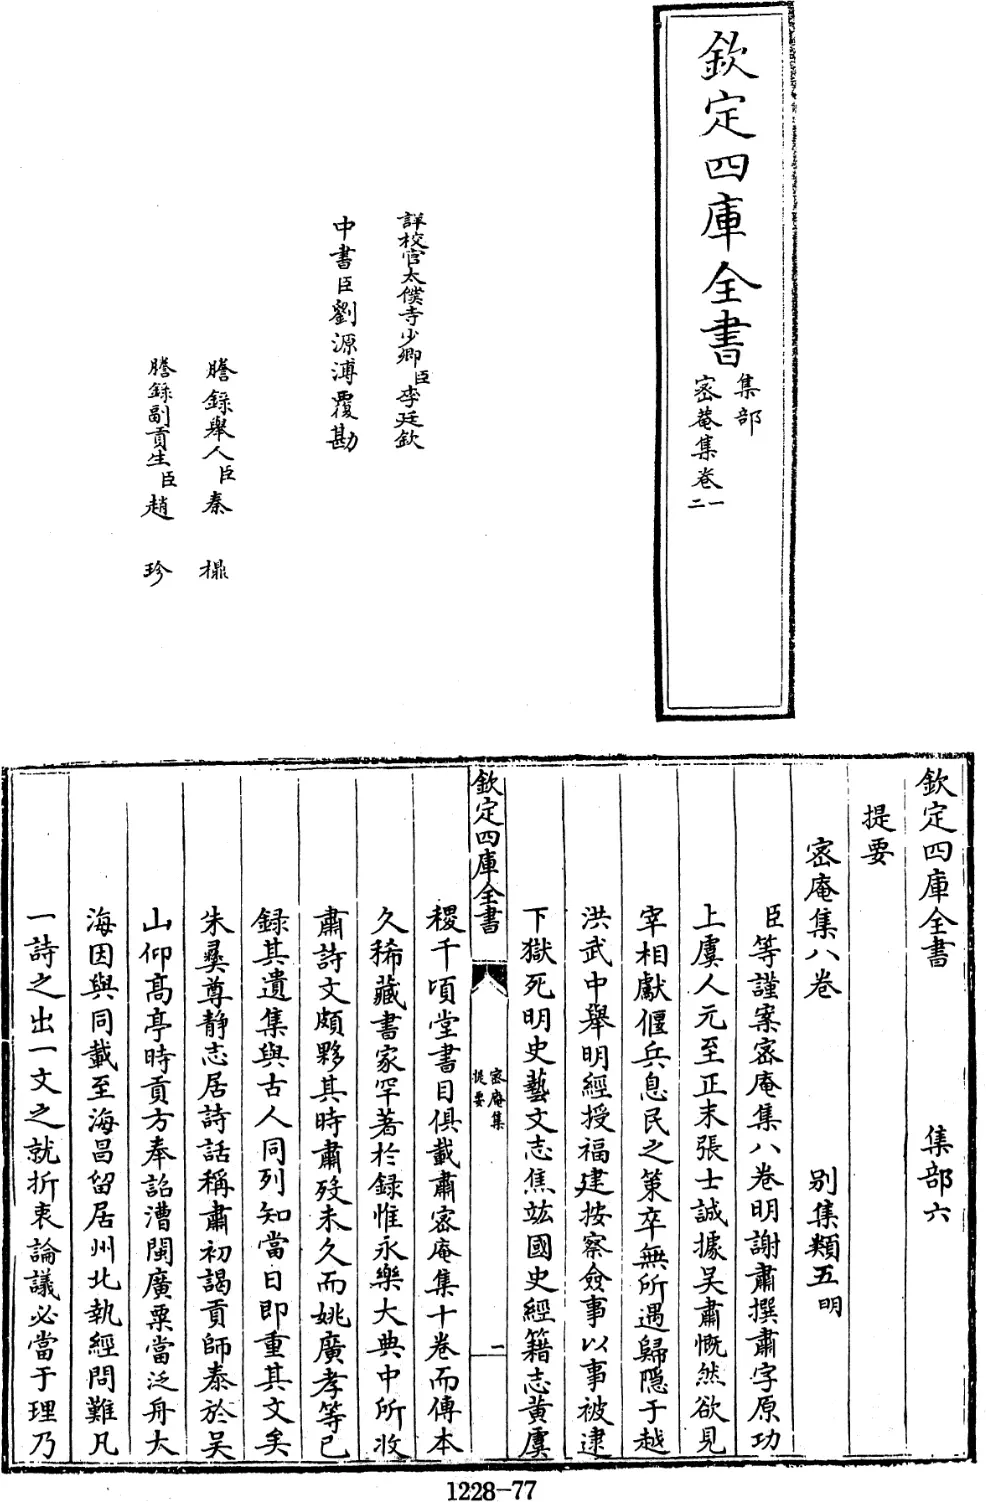 欽定四庫全書
集部
密菴集卷一
二
詳校官太僕寺少卿臣李廷欽
中書臣劉源溥覆勘
謄錄舉人臣秦
謄錄副貢生臣趙珍
欽定四庫全書
集部六
提要
密庵集八卷
别集類五明
臣等謹案密庵集八卷明謝肅撰肅字原功
上虞人元至正末張士誠據吴肅慨然欲見
宰相獻偃兵息民之策卒無所遇歸隱于越
洪武中舉明經授福建按察僉事以事被逮
下獄死明史藝文志焦竑國史經籍志黄虞
欽定四庫全書
密庵集
提要
一
稷千頃堂書目俱載肅密庵集十卷而傳本
久稀藏書家罕著於録惟永樂大典中所收
肅詩文頗夥其時肅殁未久而姚廣孝等已
録其遺集與古人同列知當日即重其文矣
朱彝尊静志居詩話稱肅初謁貢師泰於吴
山仰髙亭時貢方奉詔漕閩廣粟當泛舟大
海因與同載至海昌留居州北執經問難凡
一詩之出一文之就折衷論議必當于理乃
1228-77